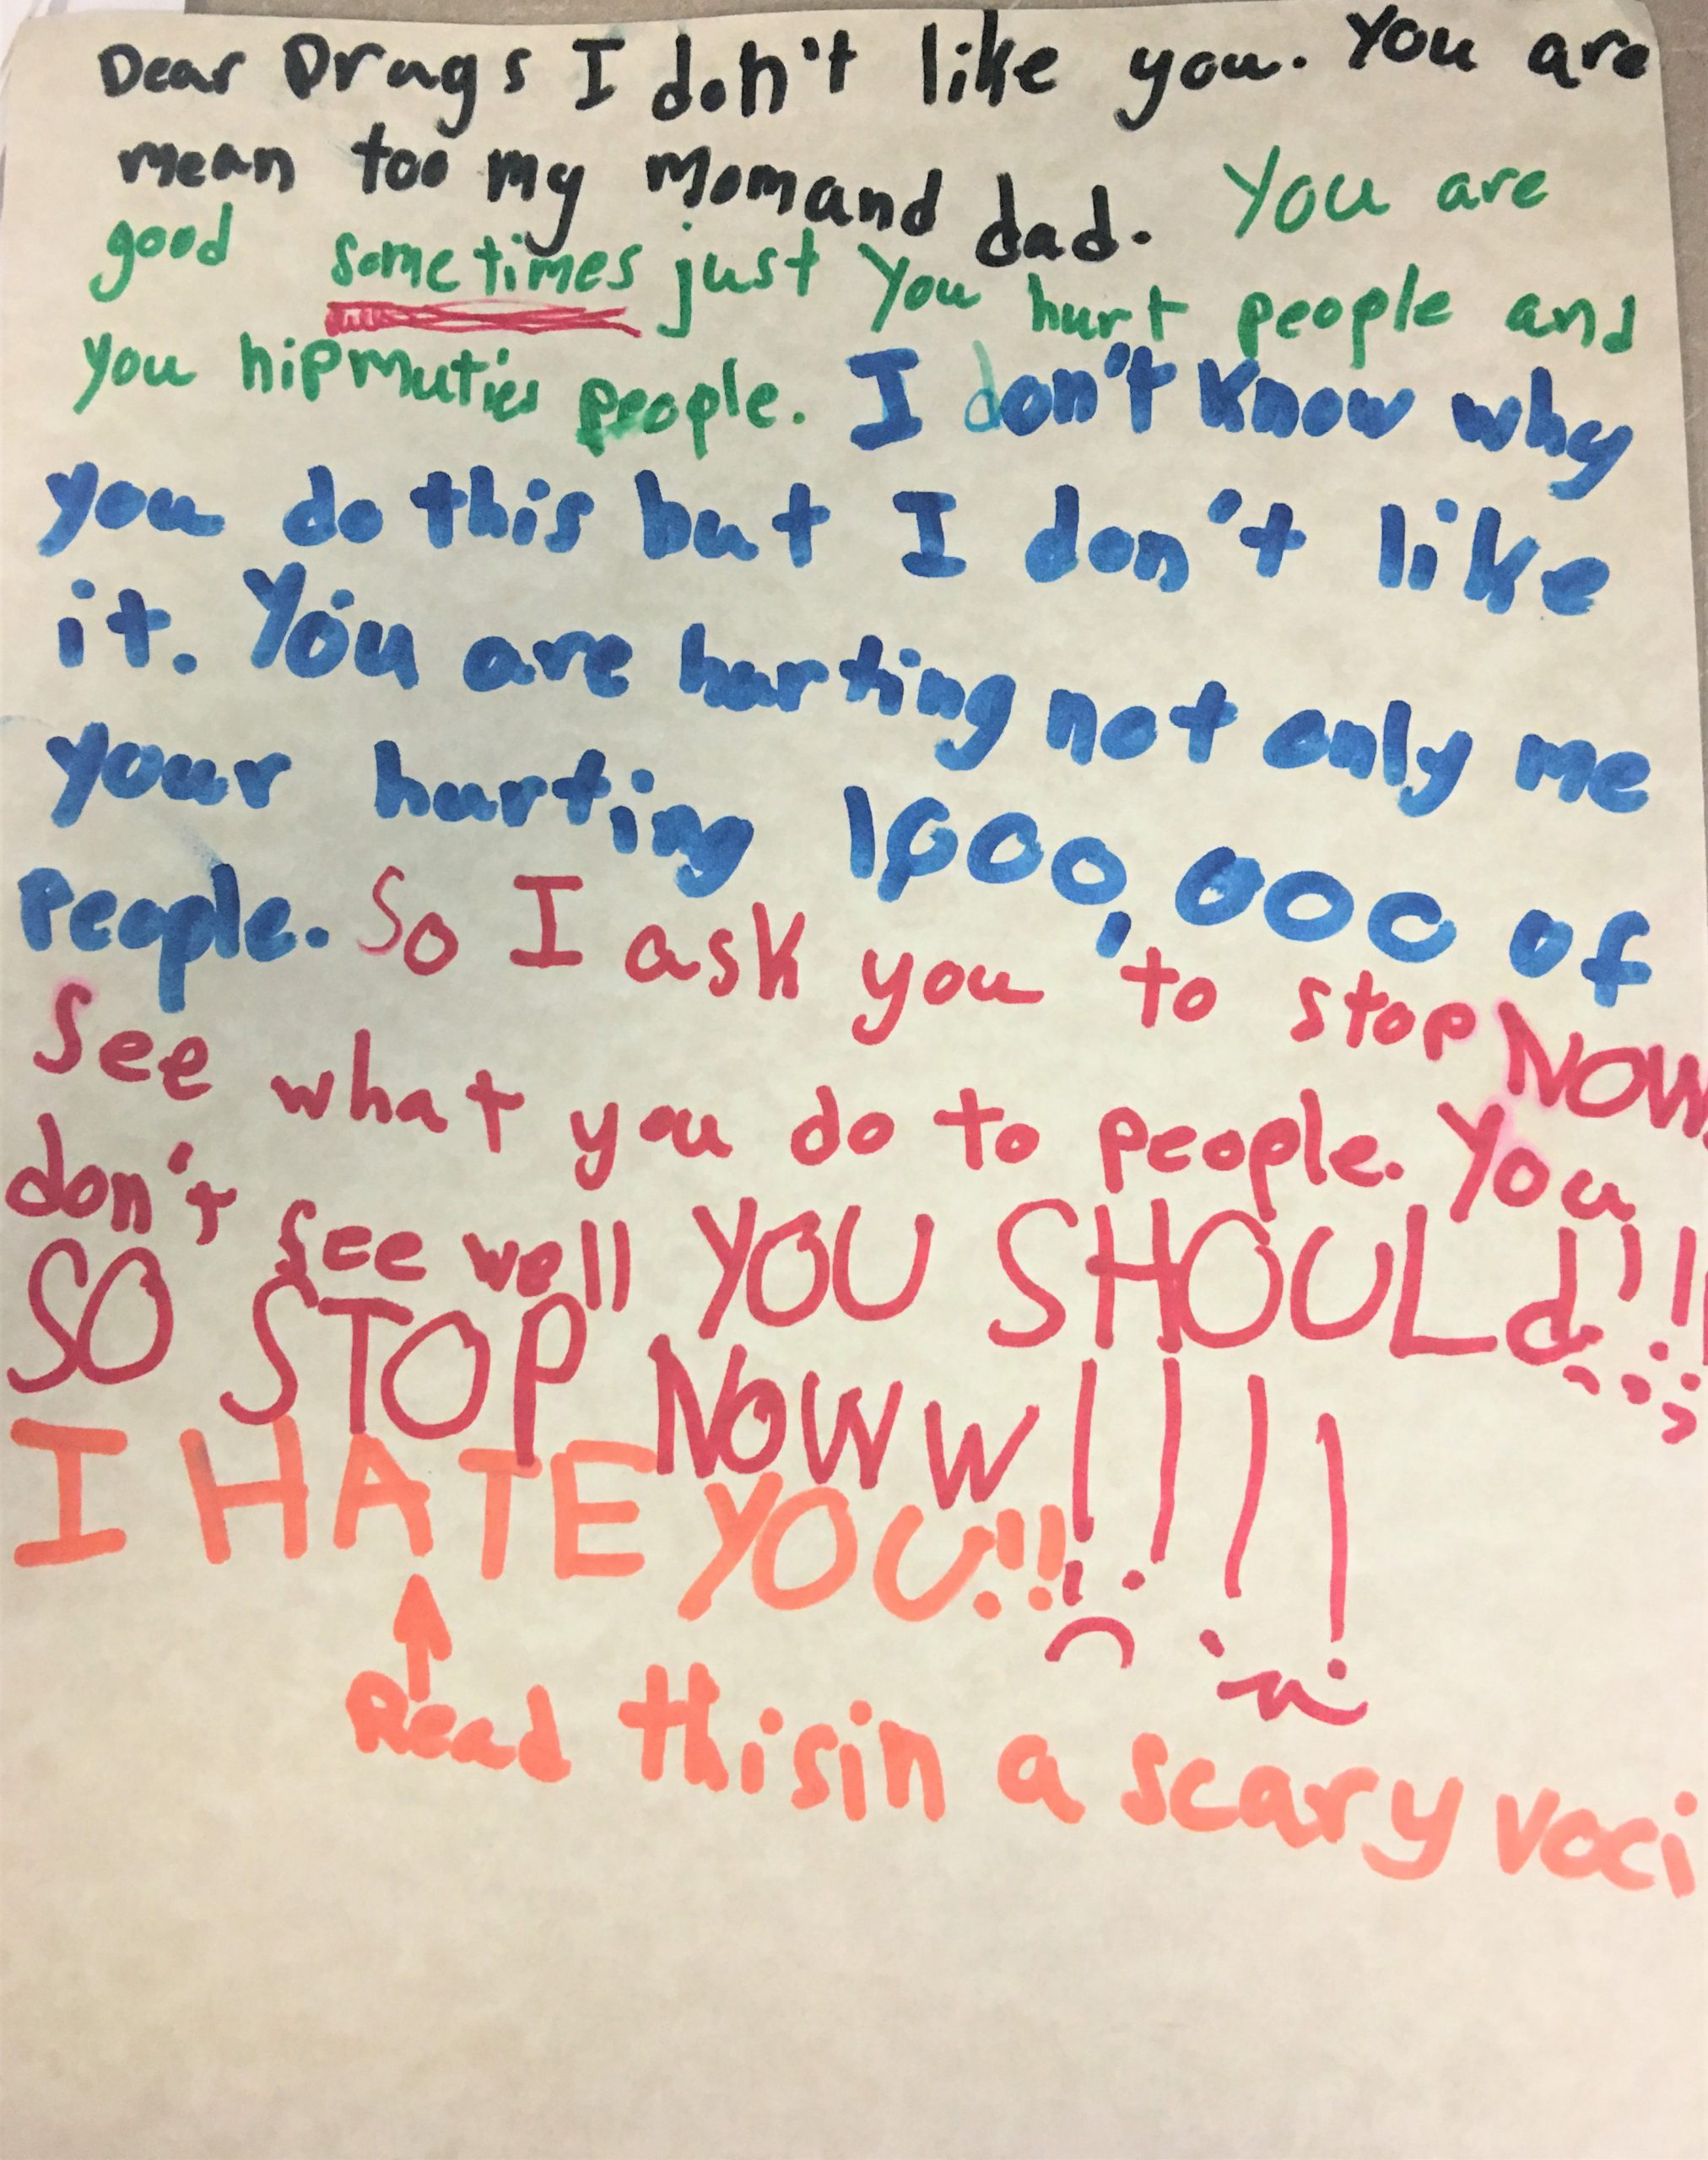 Dear Drugs I don't like you. You are
mean too my Mom and dad. You are
good sometimes just you hurt people and
you hipmuties people. I don't know why
you do this but I don't like
it. You are hurting not only me
your hurting 1000,000 of
People. So I ask you to stop NOW.
See what you do to people. You
don't see well YOU SHOULd!!!
SO STOP NOWW!!!!
I HATE YOU!!!
Read this in a scary voci